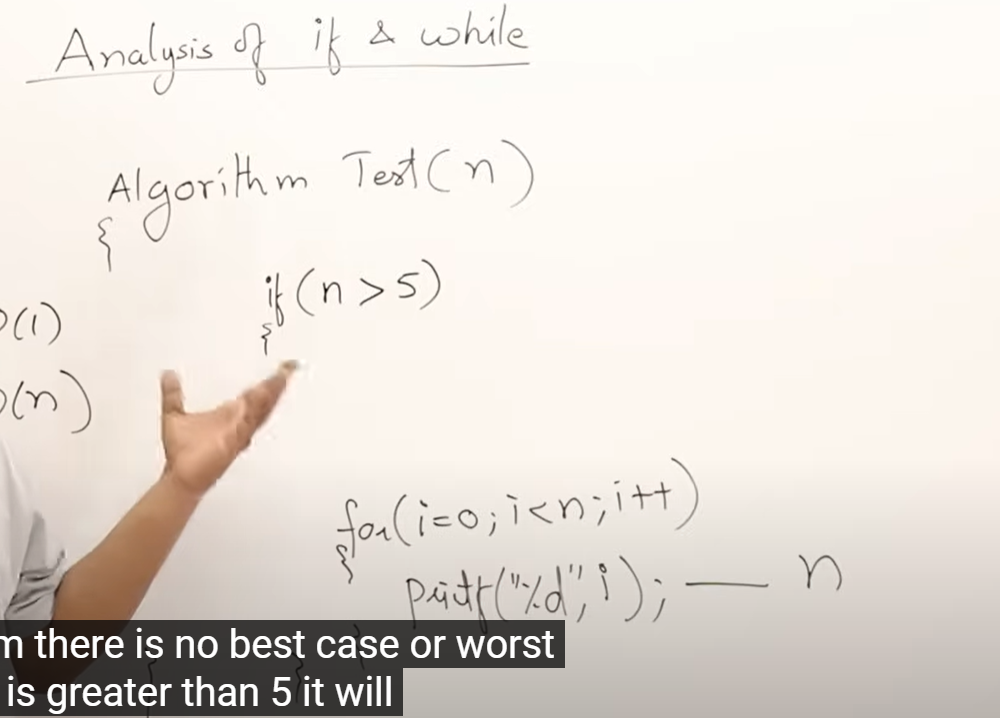 Analysis of if & while
Algorithm Test(n)
{
if(n > 5)
{
O(1)
O(n)
for(i=0; i<n; i++)
{
printf("%d", i); — n
}
m there is no best case or worst
is greater than 5 it will